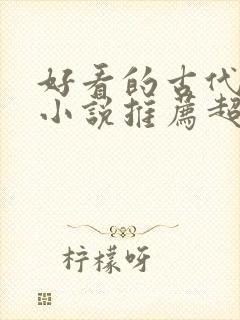 好看的古代
小说推荐超
柠檬呀